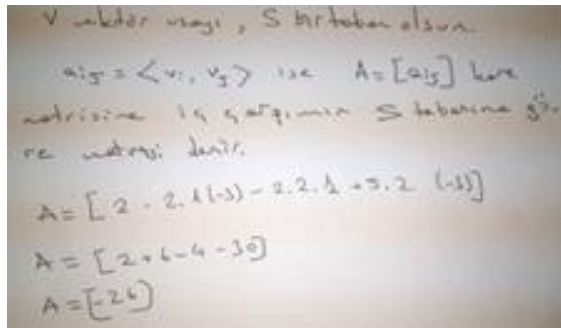 V vektör uzayı, S bir taban olsun.
aij = <vi, vj> ise A = [aij] kare
matrisine iç çarpımın S tabanına gö-
re matrisi denir.
A = [2 - 2.1(-3) - 2.2.1 + 5.2 (-3)]
A = [2+6-4-30]
A = [-26]